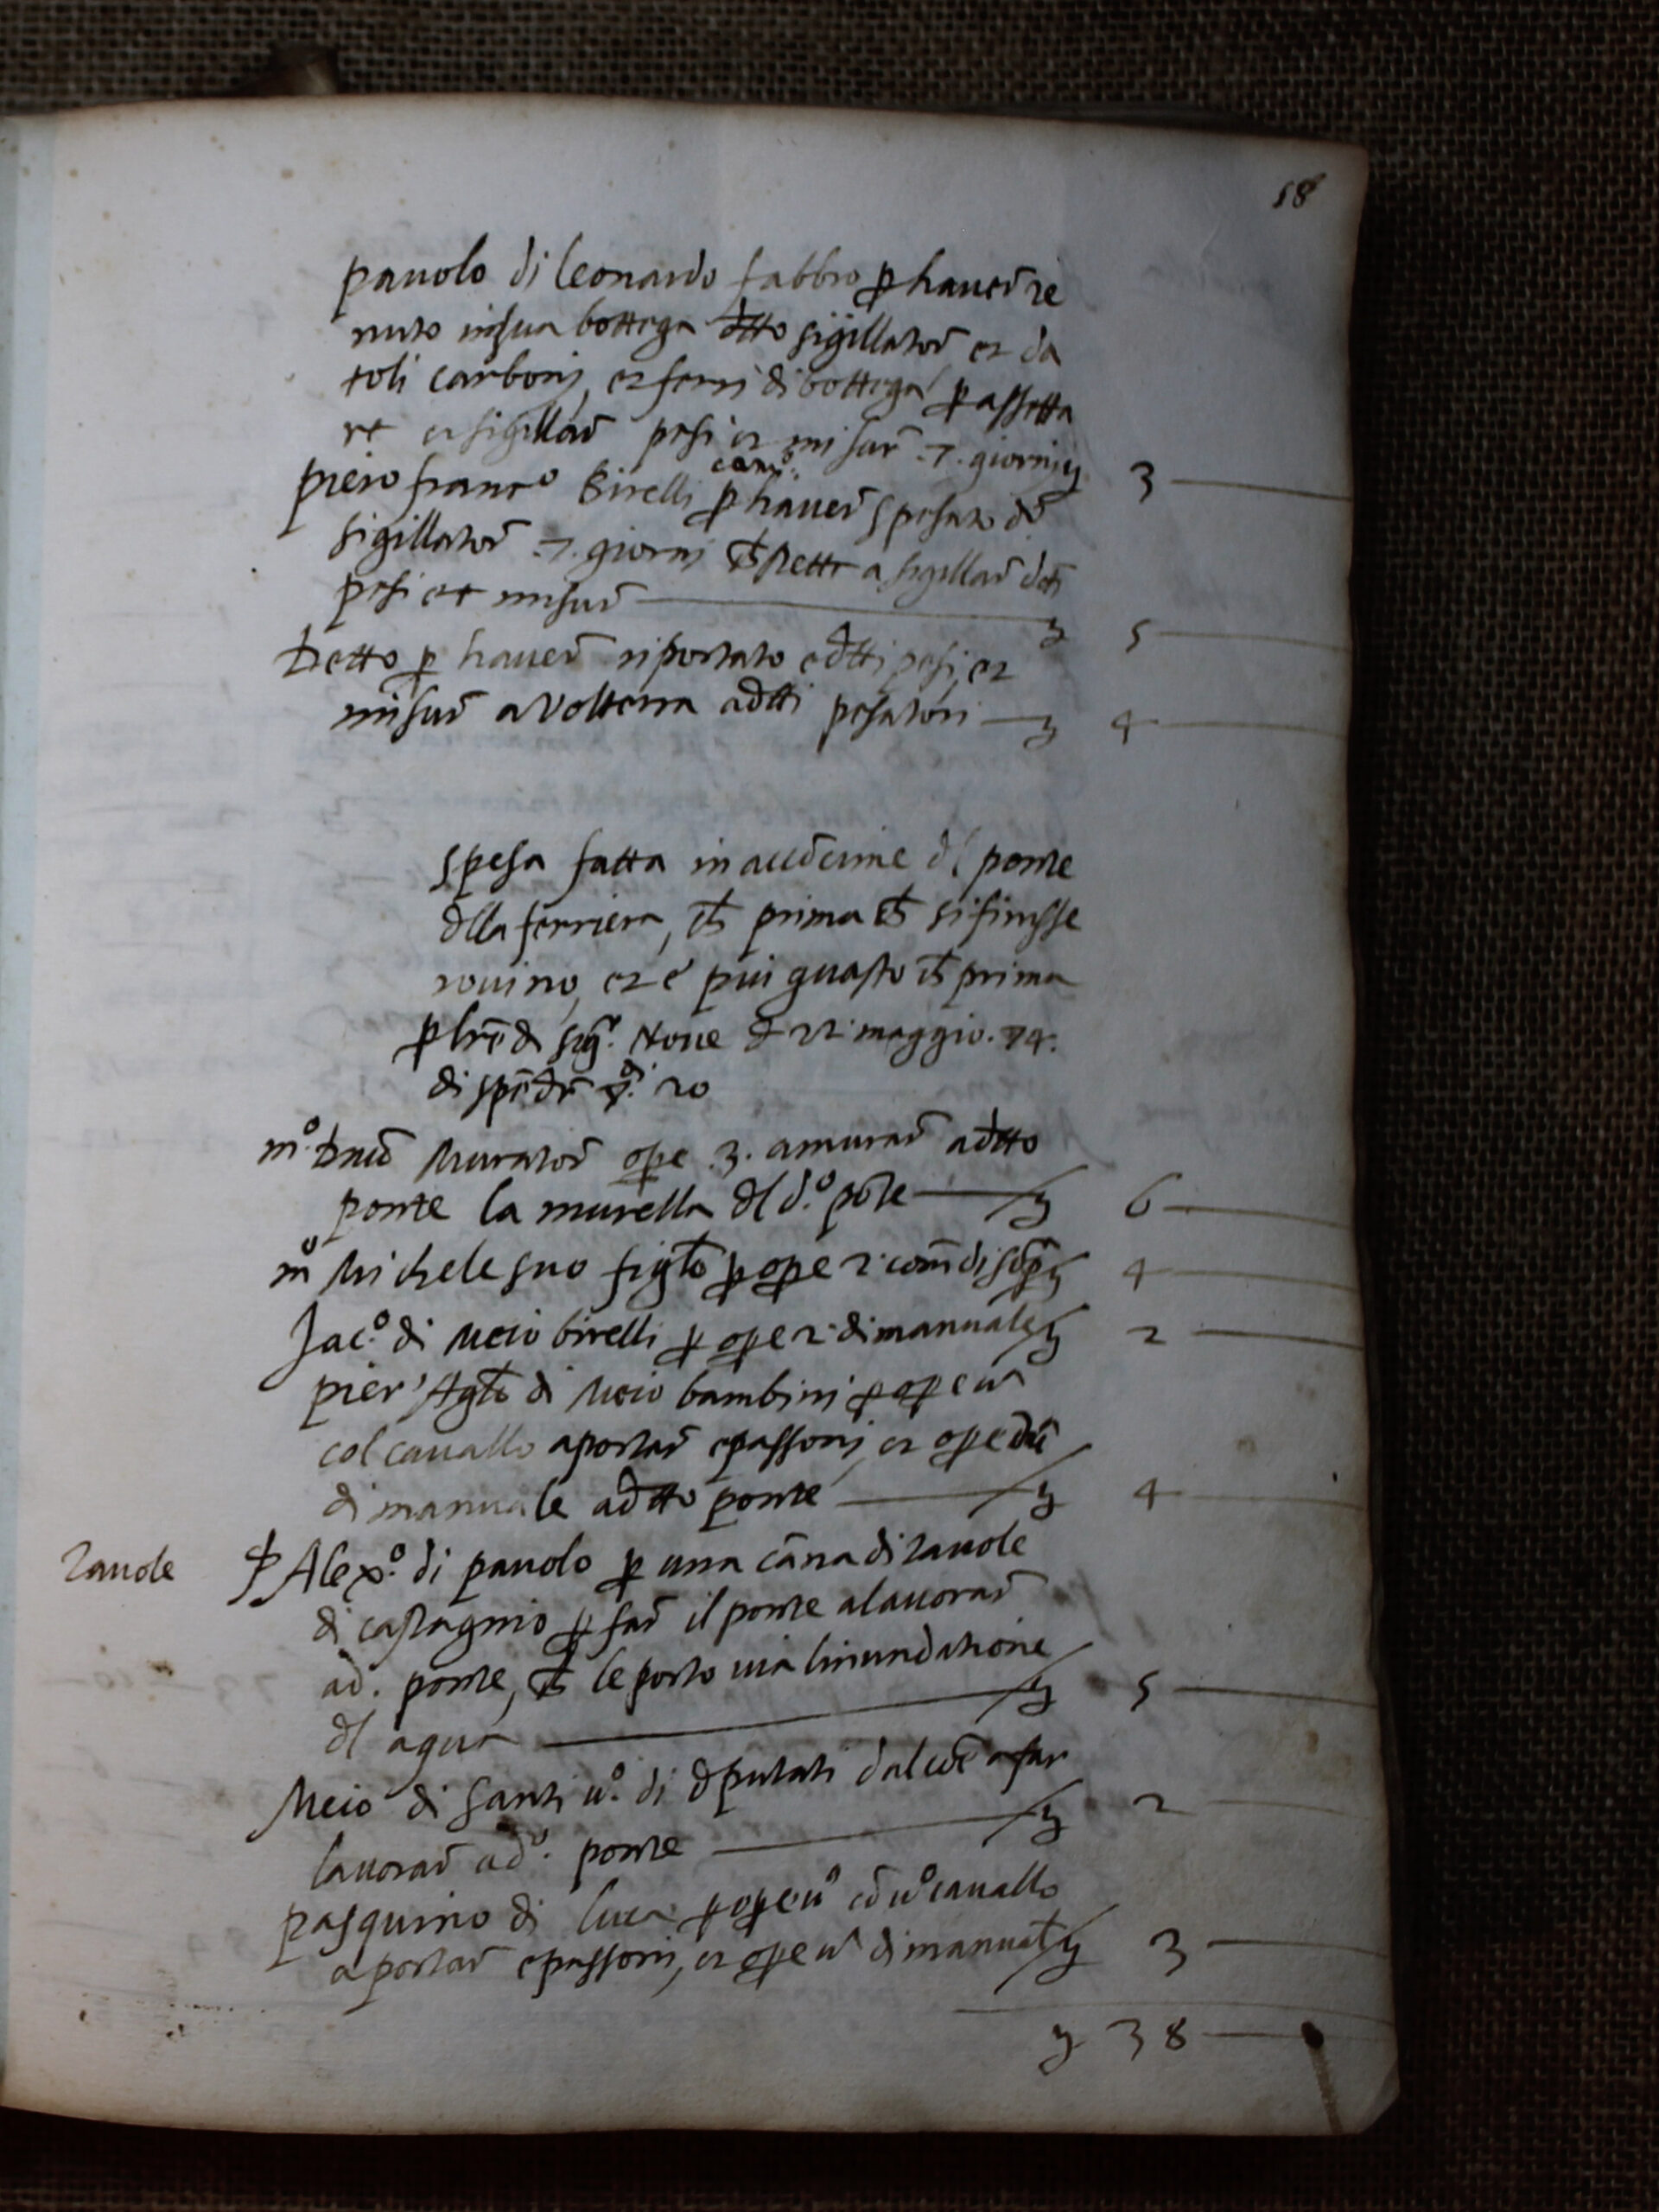 18
pauolo di leonardo fabbro p haver te
nuto in sua bottega dtto sigillator et da
toli carboni, et ferri di bottega p assetta
re et sigillar pesi et misur .7. giorni 3
camo.
piero franco Birelli p haver spesato do
sigillator .7. giorni ch stette a sigillar dti
pesi et misur 5
Detto p haver riportato edtti pesi, et
misur a volterra adtti pesatori 4
spesa fatta in accōcime dl ponte
dlla ferriera, ch prima ch si finisse
rovino, et è piu guasto ch prima
p lre di sigri Nove d 22 maggio. 74.
di spēder 20
mo. Dnico Murator ope .3. a murar adtto
ponte la murella dl do. pōte 6
mo Michele suo figlo p ope 2 come di sopa 4
Jaco. di Meio birelli p ope 2 di manuale 2
pier' Aglo di Meio bambini p ope ua
col cavallo a portar e passoni, et ope due
di manuale adtto ponte 4
Tavole
Alexo. di pauolo p una cāna di tavole
di castagnio p far il ponte a lavorar
ad. ponte, ch le porto via linundatione
dl aqua 5
Meio di Santi uo. di dputati dal coe a far
lavorar ado. ponte 2
pasquino di Luca p ope uo cō uo cavallo
a portar e passoni, et ope ua di manuale 3
38